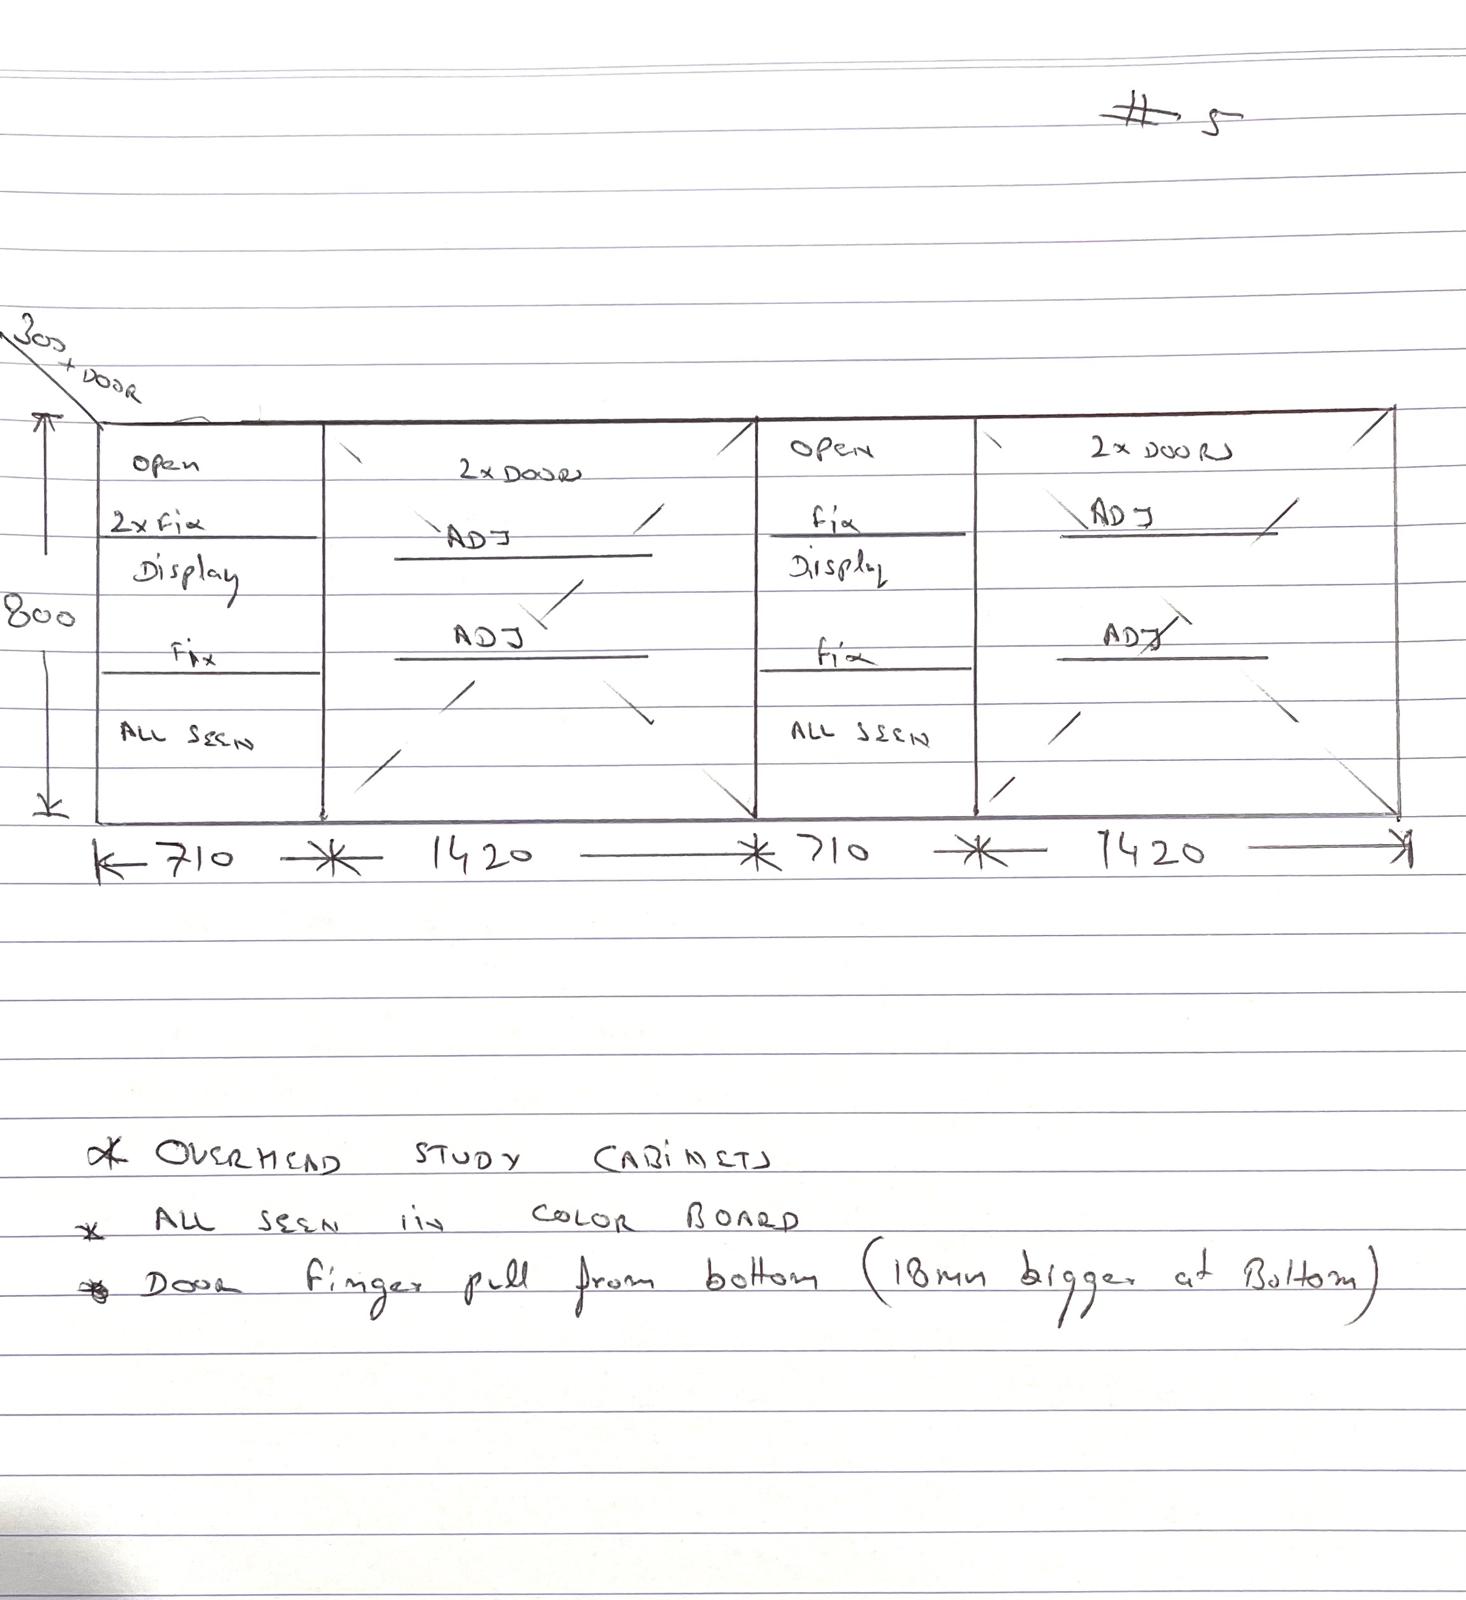 # 5
300
+ DOOR
Open
2x DOORS
OPEN
2x DOORS
2x Fix
ADJ
Fix
ADJ
Display
Display
800
Fix
ADJ
Fix
ADJ
ALL SEEN
ALL SEEN
710
1420
710
1420
* OVERHEAD STUDY CABINETS
* ALL SEEN iiN COLOR BOARD
* Door Finger pull from bottom (18mm bigger at Bottom)